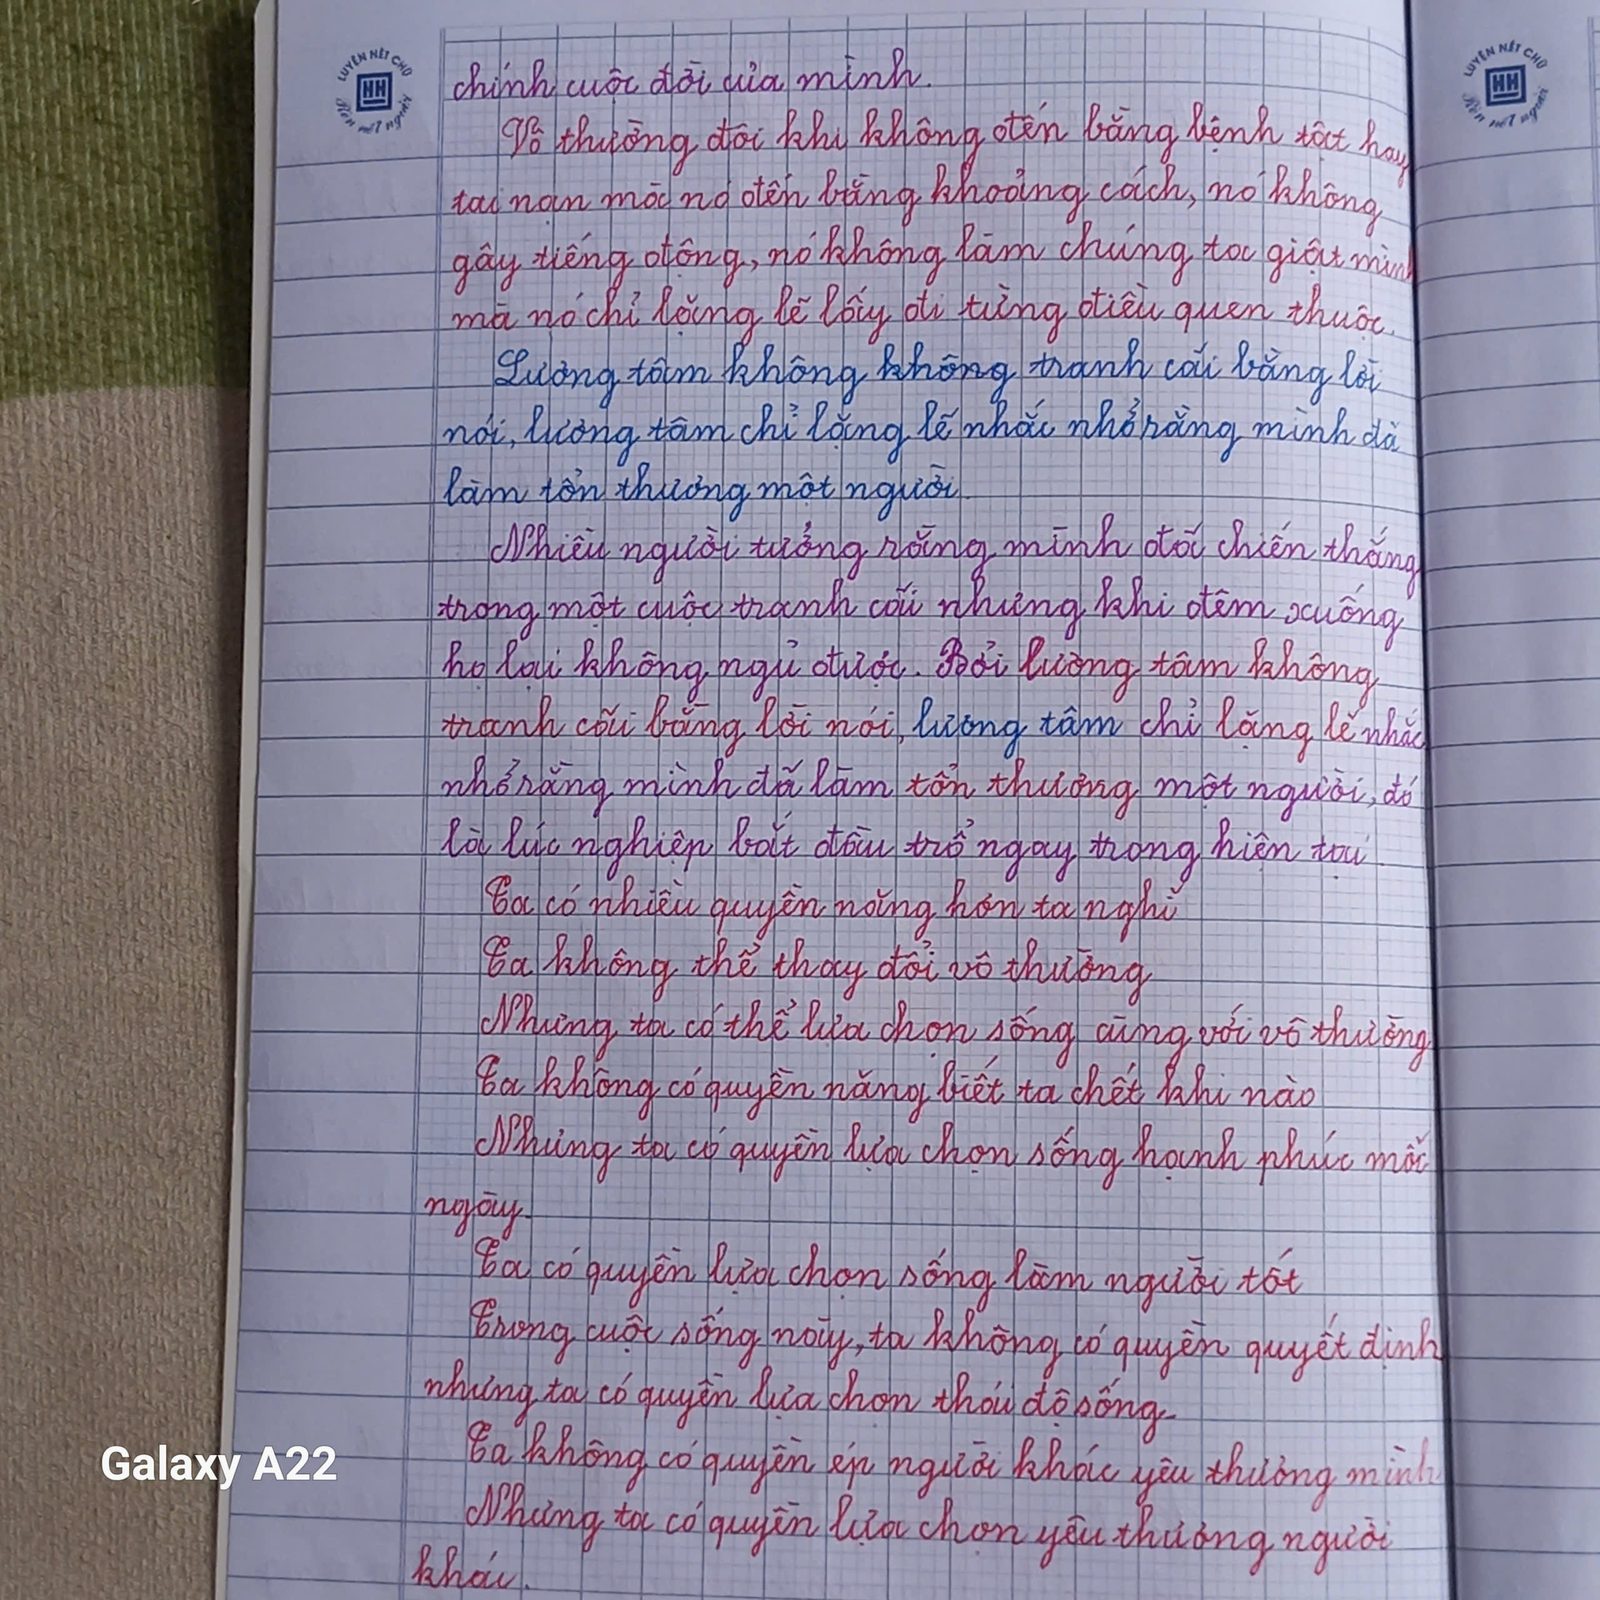 LUYỆN NÉT CHỮ
HH
Rèn nết người
LUYỆN NÉT CHỮ
HH
Rèn nết người
chính cuộc đời của mình.
Vô thường đôi khi không đến bằng bệnh tật hay
tai nạn mà nó đến bằng khoảng cách, nó không
gây tiếng động, nó không làm chúng ta giật mình
mà nó chỉ lặng lẽ lấy đi từng điều quen thuộc.
Lương tâm không không tranh cãi bằng lời
nói, lương tâm chỉ lặng lẽ nhắc nhở rằng mình đã
làm tổn thương một người.
Nhiều người tưởng rằng mình đã chiến thắng
trong một cuộc tranh cãi nhưng khi đêm xuống
họ lại không ngủ được. Bởi lương tâm không
tranh cãi bằng lời nói, lương tâm chỉ lặng lẽ nhắc
nhở rằng mình đã làm tổn thương một người, đó
là lúc nghiệp bắt đầu trổ ngay trong hiện tại.
Ta có nhiều quyền năng hơn ta nghĩ
Ta không thể thay đổi vô thường
Nhưng ta có thể lựa chọn sống cùng với vô thường
Ta không có quyền năng biết ta chết khi nào
Nhưng ta có quyền lựa chọn sống hạnh phúc mỗi
ngày.
Ta có quyền lựa chọn sống làm người tốt
Trong cuộc sống này, ta không có quyền quyết định
nhưng ta có quyền lựa chọn thái độ sống.
Ta không có quyền ép người khác yêu thương mình
Nhưng ta có quyền lựa chọn yêu thương người
khác.
Galaxy A22